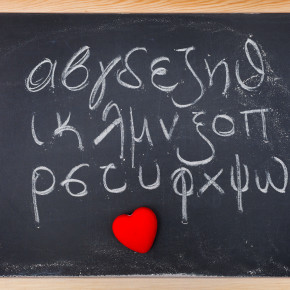 αβγδεζηθ
ικλμνξοπ
ρςτυφχψω